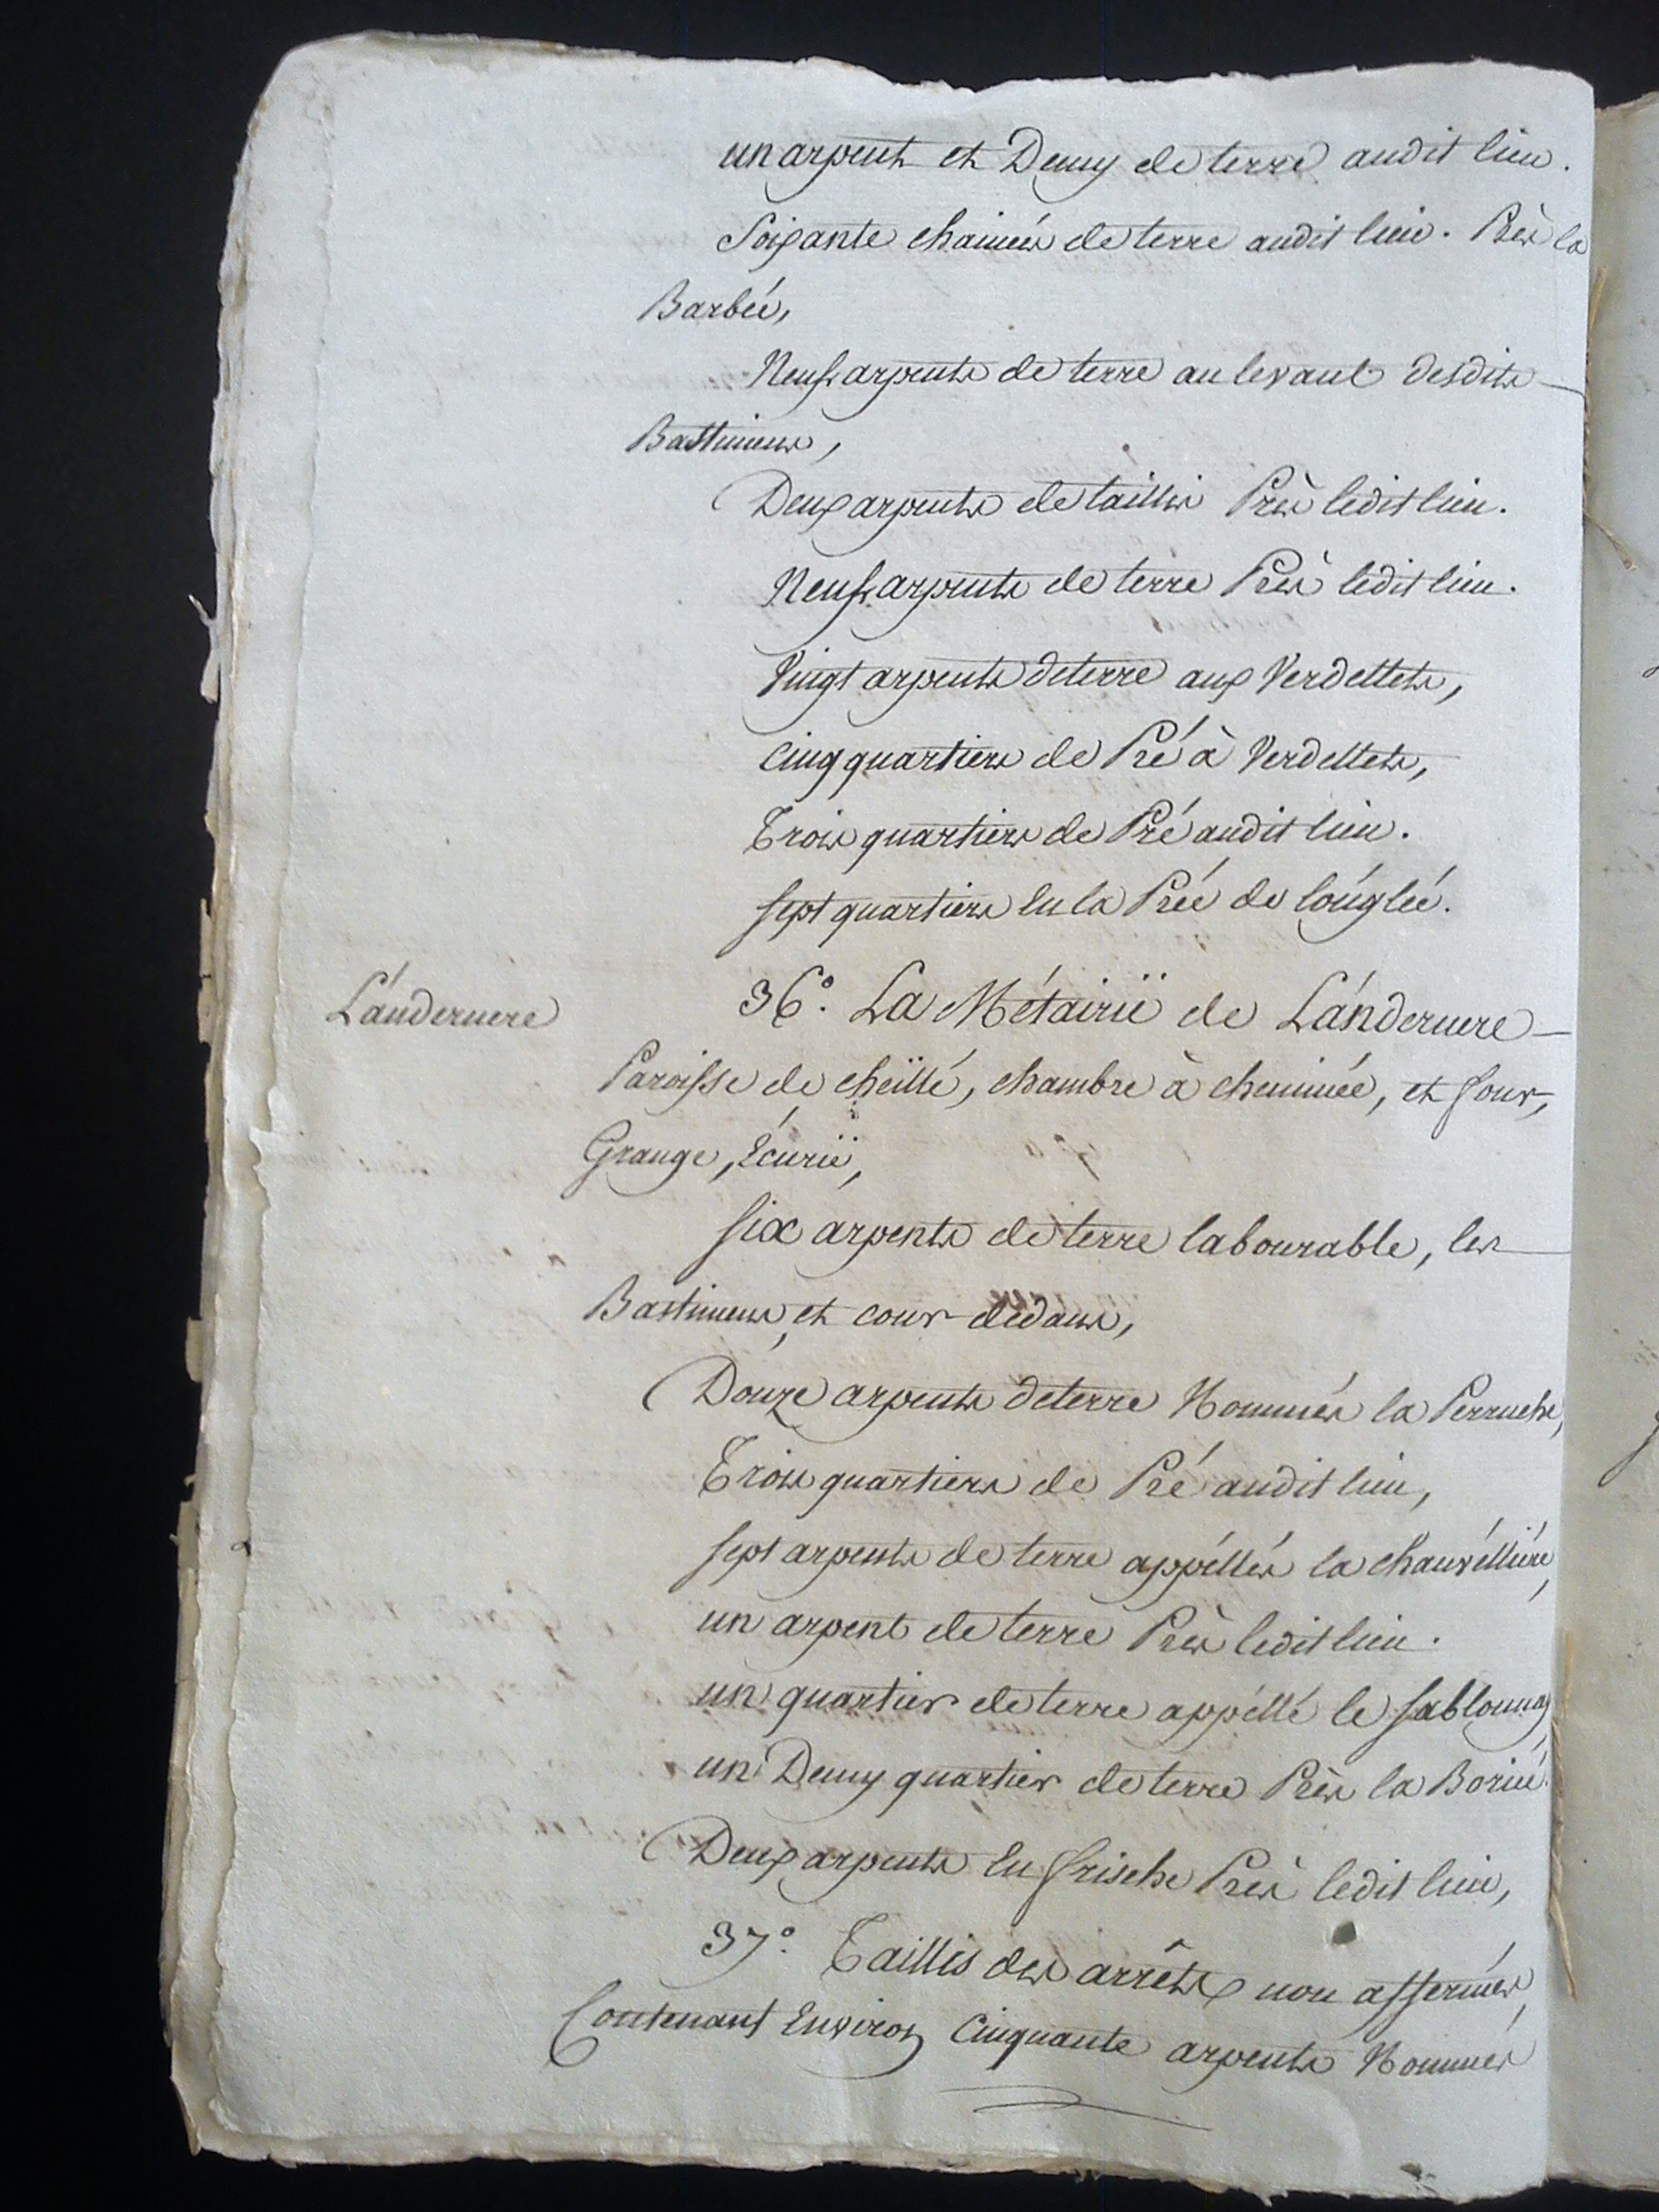 un arpent et Demy de terre audit lieu.
Soixante chainées de terre audit lieu. Près la
Barbée,
Neuf arpents de terre au levant desdits
Bastimens,
Deux arpents de taillis Près ledit lieu.
Neuf arpents de terre Près ledit lieu.
Vingt arpents de terre aux Verdettets,
Cinq quartiers de Pré à Verdettets,
Trois quartiers de Pré audit lieu.
sept quartiers en la Prée de
36° La Métairïe de L'anderuere
L'anderuere
Paroisse de cheillé, chambre à cheminée, et four,
Grange, Ecurïe,
six arpents de terre labourable, les
Bastimens, et cour dedans,
Douze arpents de terre Nommés la Perruche,
Trois quartiers de Pré audit lieu,
sept arpents de terre appéllés la chauvéllière,
un arpent de terre Près ledit lieu.
un quartier de terre appéllé le Sablonnay,
un Demy quartier de terre Près la
Deux arpents en frische Près ledit lieu,
37° Taillis des non affermés,
Contenant Environ Cinquante arpents Nommés